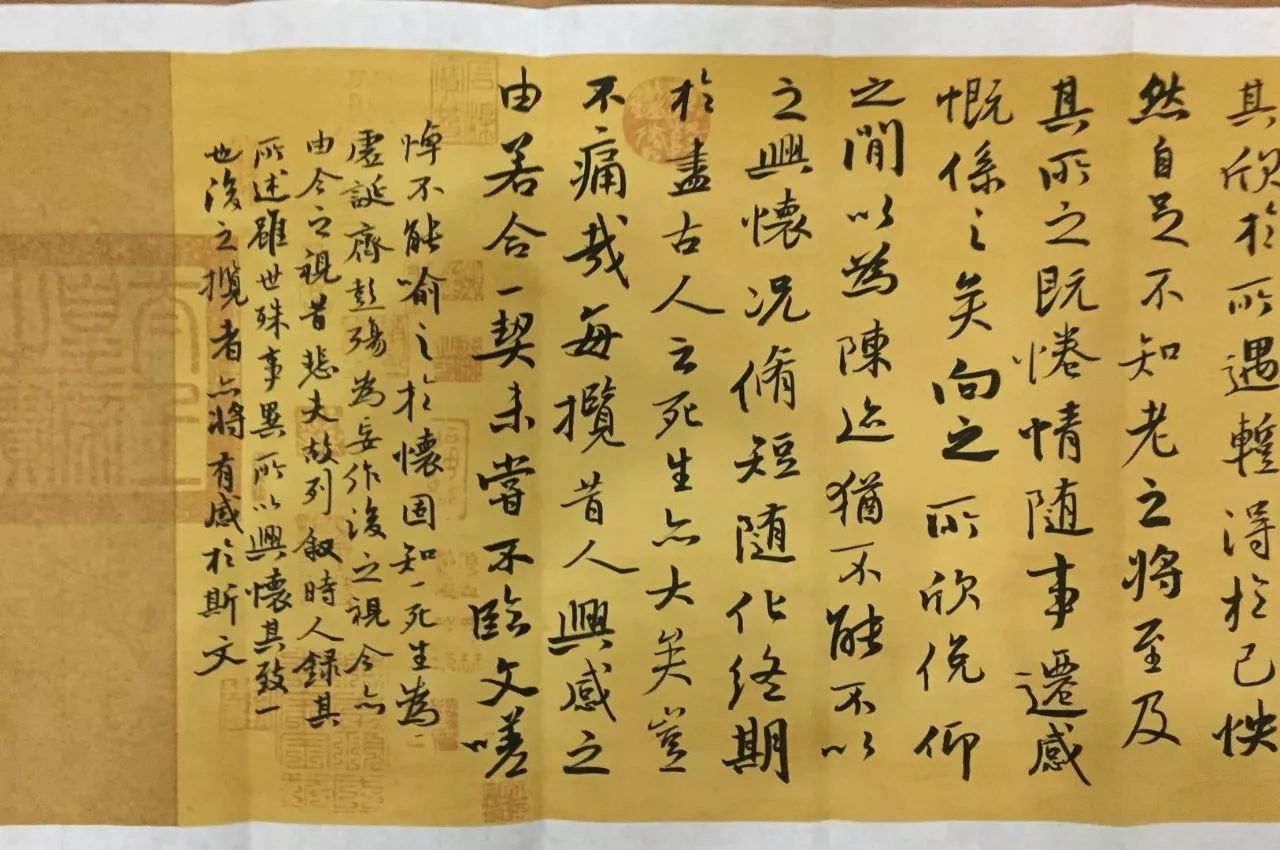 其欣於所遇蹔得於己怏
然自足不知老之將至及
其所之既惓情隨事遷感
慨係之矣向之所欣俛仰
之閒以為陳迹猶不能不以
之興懷況脩短隨化終期
於盡古人云死生亦大矣豈
不痛哉每攬昔人興感之
由若合一契未嘗不臨文嗟
悼不能喻之於懷固知一死生為
虛誕齊彭殤為妄作後之視今亦
由今之視昔悲夫故列叙時人錄其
所述雖世殊事異所以興懷其致一
也後之攬者亦將有感於斯文